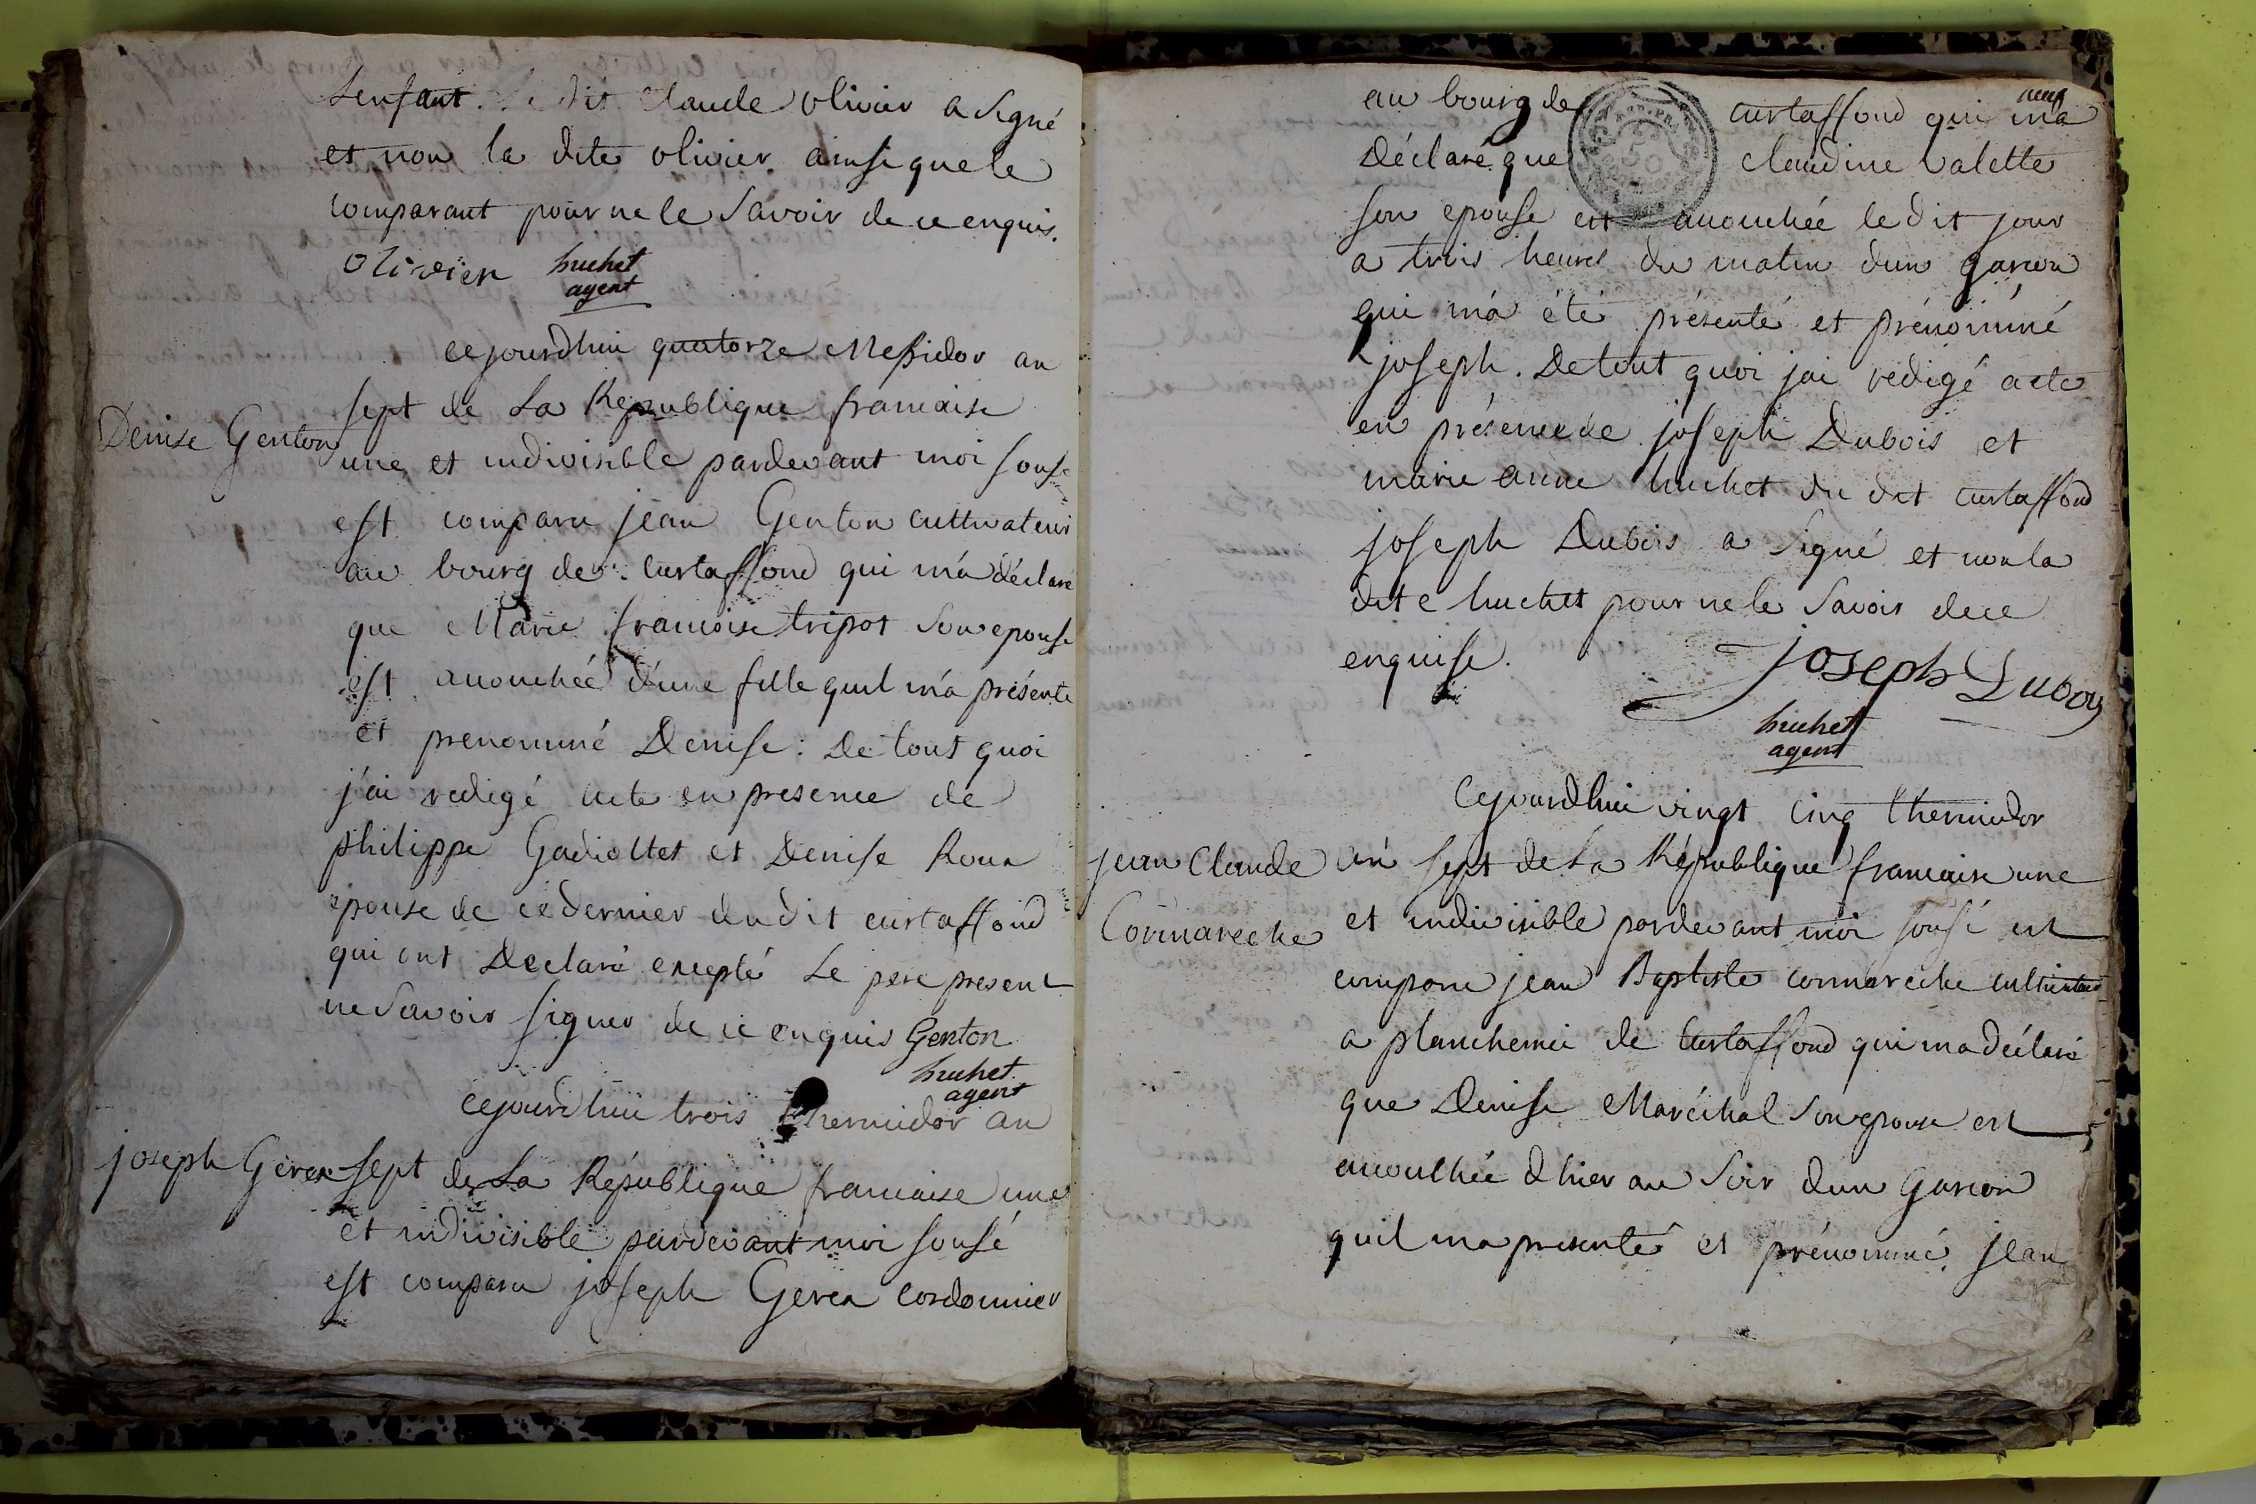 Lenfant. Le dit Claude olivier a Signé
et non la dite olivier ainsi que le
comparant pour ne le Savoir de ce enquis.
Olivier huchet
agent
cejourdhui quatorze Messidor an
sept de La République francaise
Denise Genton
une et indivisible pardevant moi sousé
est comparu jean Genton cultivateur
au bourg de Curtaffond qui m'a déclaré
que Marie francoise tripot Son epouse
est accouchée d'une fille quil m'a présenté
et prenommé Denise. De tout quoi
j'ai redigé acte en presence de
philippe Gadiollet et Denise Roux
epouse de ce dernier du dit curtaffond
qui ont Declaré excepté Le pere present
ne Savoir signer de ce enquis Genton
huchet
agent
cejourdhui trois thermidor an
joseph Gerea
sept de La République francaise une
et indivisible pardevant moi sousé
est comparu joseph Gerea cordonnier
neuf
au bourg de curtaffond qui m'a
Déclaré que Claudine Valette
son epouse est accouchée le dit jour
a trois heures du matin dun garcon
qui m'a été présenté et prénommé
joseph. De tout quoi jai rédigé acte
en présence de joseph Dubois et
marie anne huchet du dit curtaffond
joseph Dubois a Signé et non la
dite huchet pour ne le Savoir de ce
enquise.
joseph Duboy
huchet
agent
Cejourdhui vingt Cinq thermidor
jean Claude
an sept de La République francaise une
Cormareche
et indivisible pardevant moi sousé est
comparu jean Baptiste cormareche cultivateur
a plancheniu de Curtaffond qui ma déclaré
que Denise Maréchal Son epouse est
accouchée d'hier au Soir dun Garcon
quil ma presenté et prénommé jean